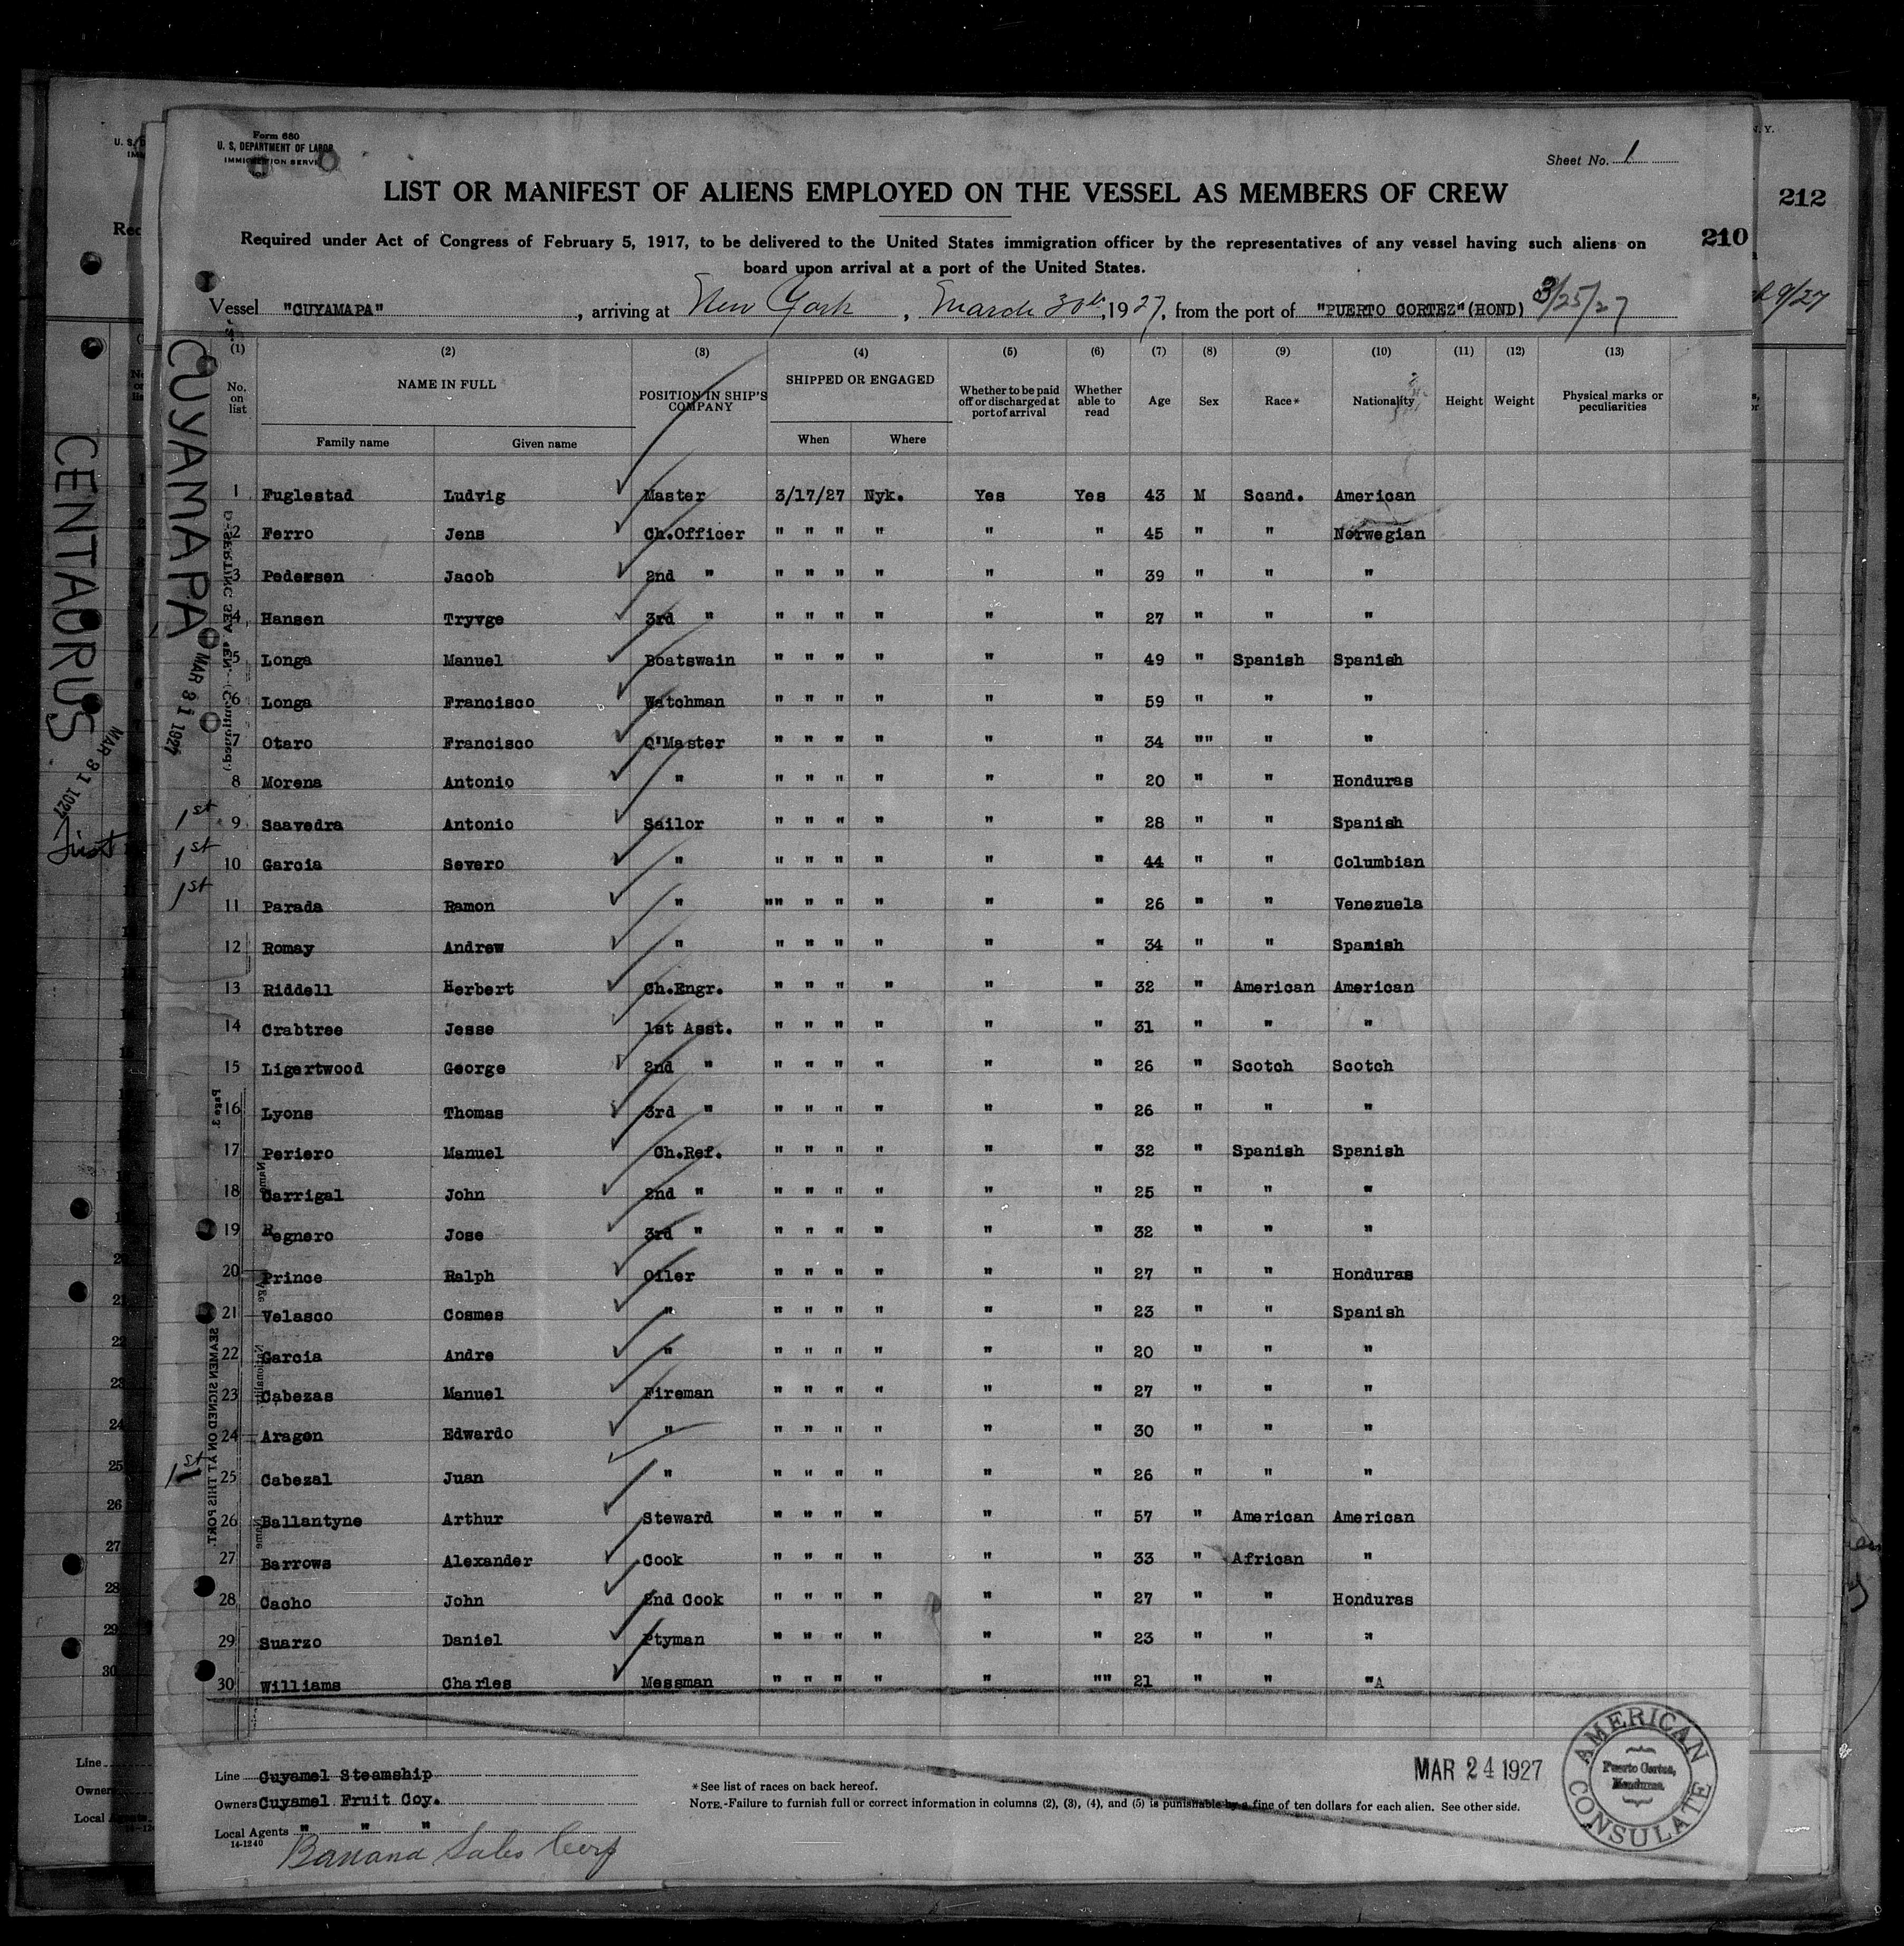 Form 680
U. S. DEPARTMENT OF LABOR
IMMIGRATION SERVICE
Sheet No. 1
LIST OR MANIFEST OF ALIENS EMPLOYED ON THE VESSEL AS MEMBERS OF CREW
212
210
Required under Act of Congress of February 5, 1917, to be delivered to the United States immigration officer by the representatives of any vessel having such aliens on
board upon arrival at a port of the United States.
Vessel "CUYAMAPA", arriving at New York, March 30th, 1927, from the port of "PUERTO CORTEZ"(HOND) 3/25/27
(1) (2) (3) (4) (5) (6) (7) (8) (9) (10) (11) (12) (13)
No. on list NAME IN FULL Family name Given name POSITION IN SHIP'S COMPANY SHIPPED OR ENGAGED When Where Whether to be paid off or discharged at port of arrival Whether able to read Age Sex Race* Nationality Height Weight Physical marks or peculiarities
1 Fuglestad Ludvig Master 3/17/27 Nyk. Yes Yes 43 M Scand. American
2 Ferro Jens Ch.Officer " " " " " " 45 " " Norwegian
3 Pedersen Jacob 2nd " " " " " " " 39 " " "
4 Hansen Tryvge 3rd " " " " " " " 27 " " "
5 Longa Manuel Boatswain " " " " " " 49 " Spanish Spanish
6 Longa Francisco Watchman " " " " " " 59 " " "
7 Otaro Francisco Q'Master " " " " " " 34 "" " "
8 Morena Antonio " " " " " " " 20 " " Honduras
1st 9 Saavedra Antonio Sailor " " " " " " 28 " " Spanish
1st 10 Garcia Severo " " " " " " " 44 " " Columbian
1st 11 Parada Ramon " "" " " " " " 26 " " Venezuela
12 Romay Andrew " " " " " " " 34 " " Spanish
13 Riddell Herbert Ch.Engr. " " " " " " 32 " American American
14 Crabtree Jesse 1st Asst. " " " " " " 31 " " "
15 Ligertwood George 2nd " " " " " " " 26 " Scotch Scotch
16 Lyons Thomas 3rd " " " " " " " 26 " " "
17 Periero Manuel Ch.Ref. " " " " " " 32 " Spanish Spanish
18 Carrigal John 2nd " " " " " " " 25 " " "
19 Regnero Jose 3rd " " " " " " " 32 " " "
20 Prince Ralph Oiler " " " " " " 27 " " Honduras
21 Velasco Cosmes " " " " " " " 23 " " Spanish
22 Garcia Andre " " " " " " " 20 " " "
23 Cabezas Manuel Fireman " " " " " " 27 " " "
24 Aragon Edwardo " " " " " " " 30 " " "
1st 25 Cabezal Juan " " " " " " " 26 " " "
26 Ballantyne Arthur Steward " " " " " " 57 " American American
27 Barrows Alexander Cook " " " " " " 33 " African "
28 Cacho John 2nd Cook " " " " " " 27 " " Honduras
29 Suarzo Daniel Ptyman " " " " " " 23 " " "
30 Williams Charles Messman " " " " " "" 21 " " "A
Line Cuyamel Steamship
Owners Cuyamel Fruit Coy.
Local Agents " " "
14-1240
Banana Sales Corp
*See list of races on back hereof.
NOTE.-Failure to furnish full or correct information in columns (2), (3), (4), and (5) is punishable by a fine of ten dollars for each alien. See other side.
MAR 24 1927
AMERICAN CONSULATE
Puerto Cortes, Honduras.
CUYAMAPA
MAR 31 1927
CENTAURUS
MAR 31 1927
First
Page 3
SEAMEN SIGNED ON AT THIS PORT.
Line
Owners
Local Agents